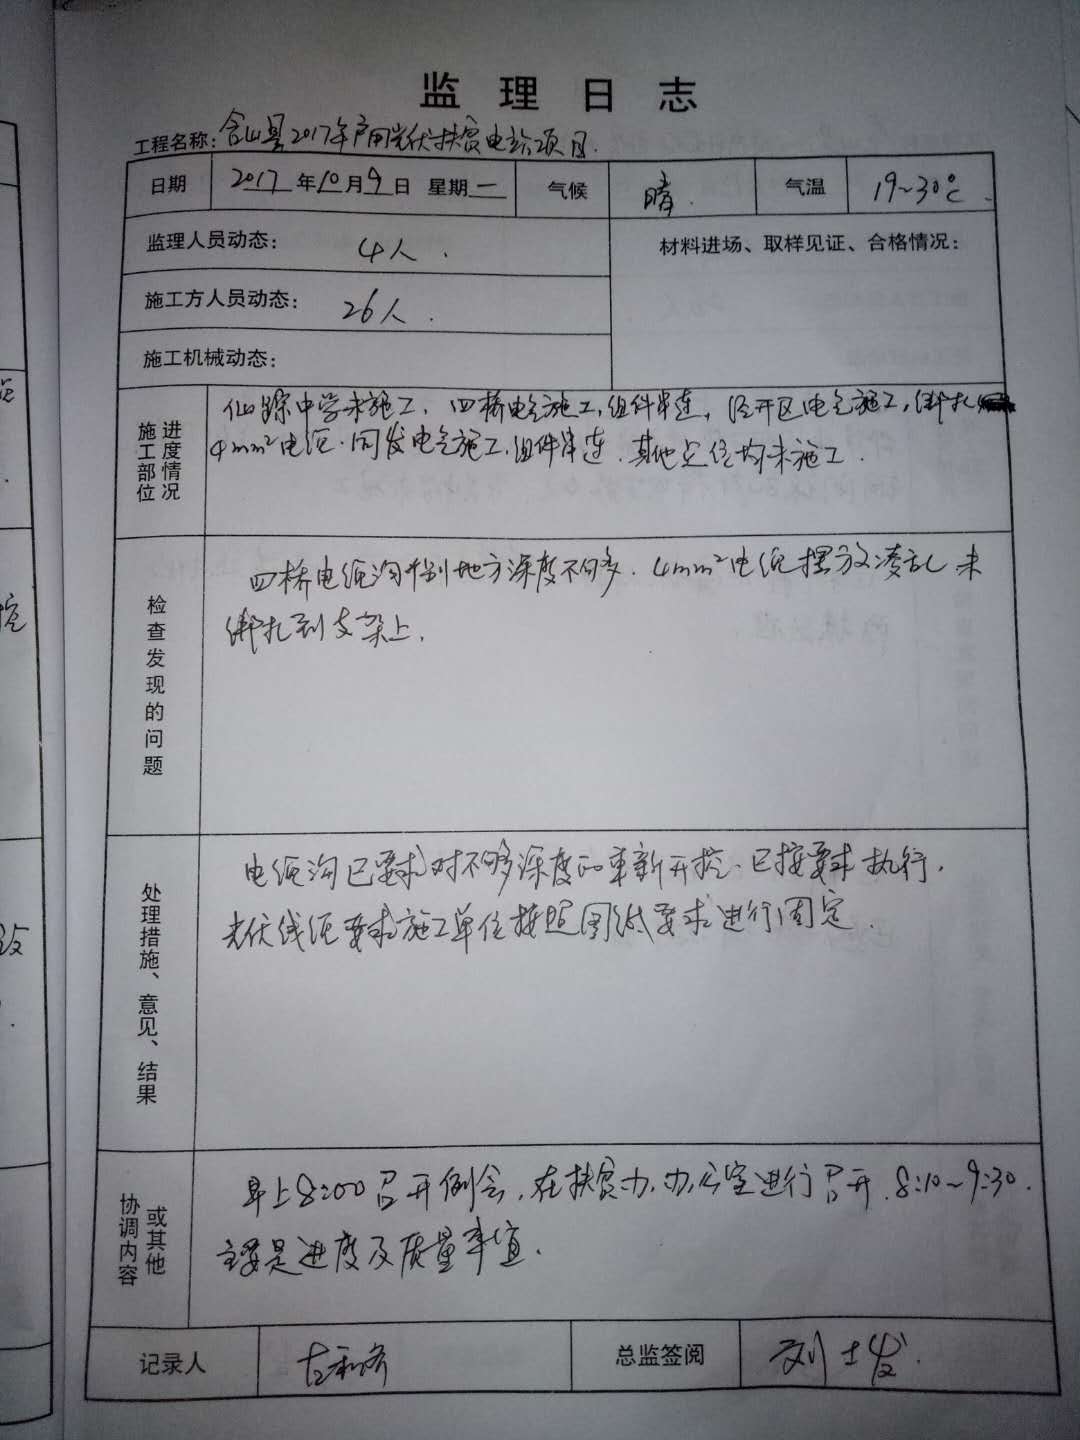 监理日志
工程名称：含山县2017年户用光伏扶贫电站项目.
日期 2017年10月9日 星期一 气候 晴. 气温 19~30℃.
监理人员动态： 4人.
材料进场、取样见证、合格情况：
施工方人员动态： 26人.
施工机械动态：
施工部位 进度情况
仙踪中学未施工. 四桥电气施工,组件串连, 经开区电气施工,绑扎
4mm²电缆.同发电气施工,组件串连.其他点位均未施工.
检查发现的问题
四桥电缆沟个别地方深度不够. 4mm²电缆摆放凌乱未
绑扎到支架上.
处理措施、意见、结果
电缆沟已要求对不够深度的重新开挖.已按要求执行.
光伏线缆要求施工单位按照图纸要求进行固定.
协调内容 或其他
早上8:00召开例会,在扶贫办办公室进行召开.8:10~9:30.
主要是进度及质量事宜.
记录人 总监签阅